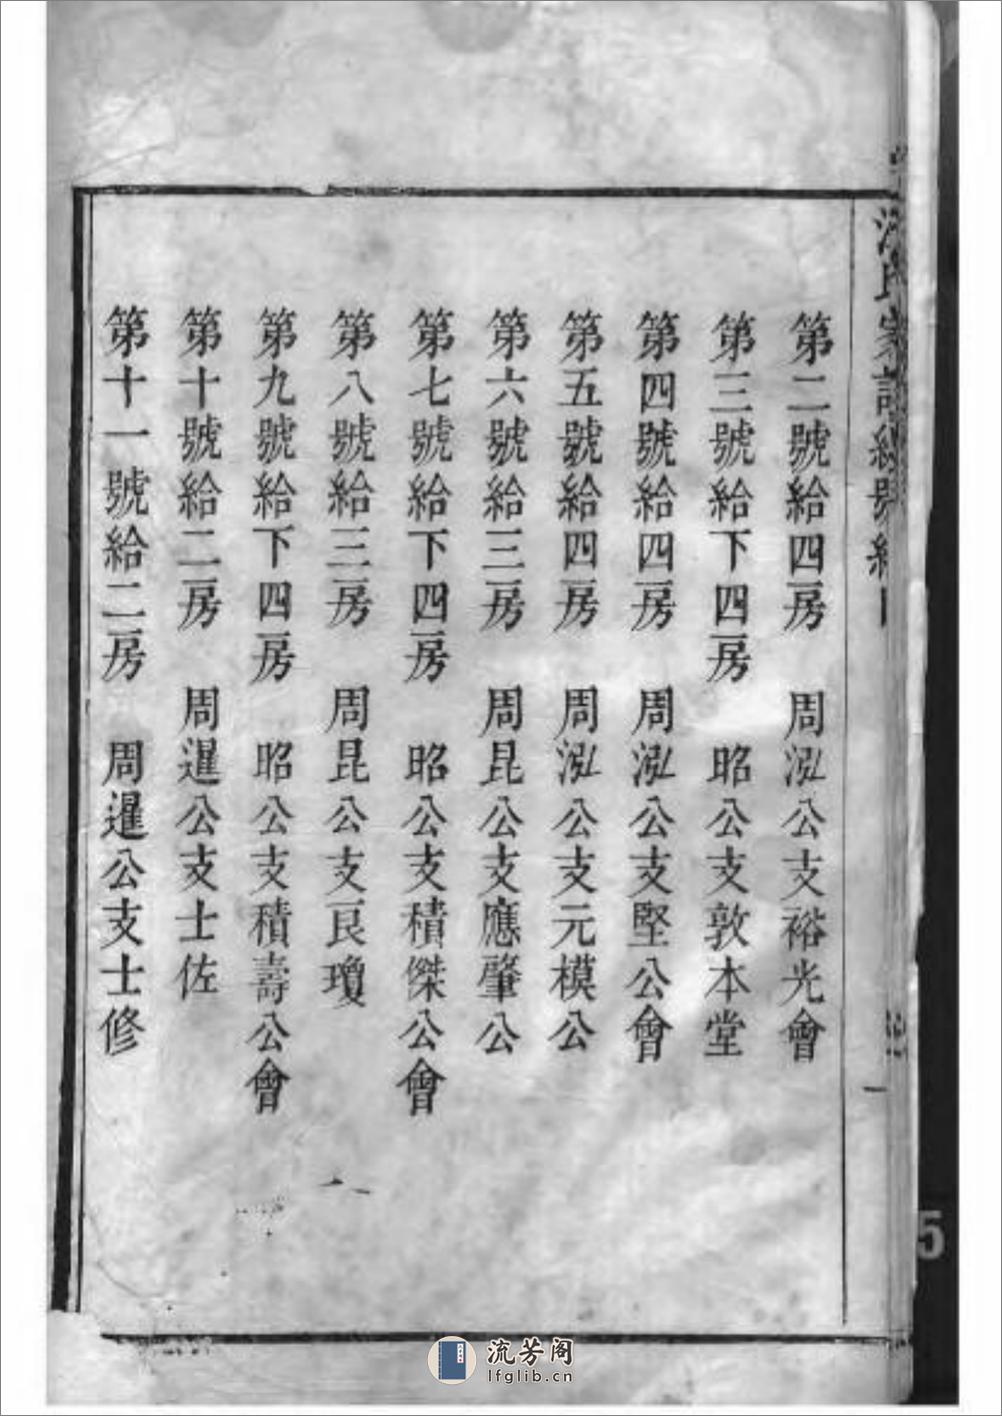 第二號給四房　周泓公支裕光會
第三號給下四房　昭公支敦本堂
第四號給四房　周泓公支堅公會
第五號給四房　周泓公支元模公
第六號給三房　周昆公支應肇公
第七號給下四房　昭公支積傑公會
第八號給三房　周昆公支良瓊
第九號給下四房　昭公支積壽公會
第十號給二房　周暹公支士佐
第十一號給二房　周暹公支士修
流芳阁
lfglib.cn
5